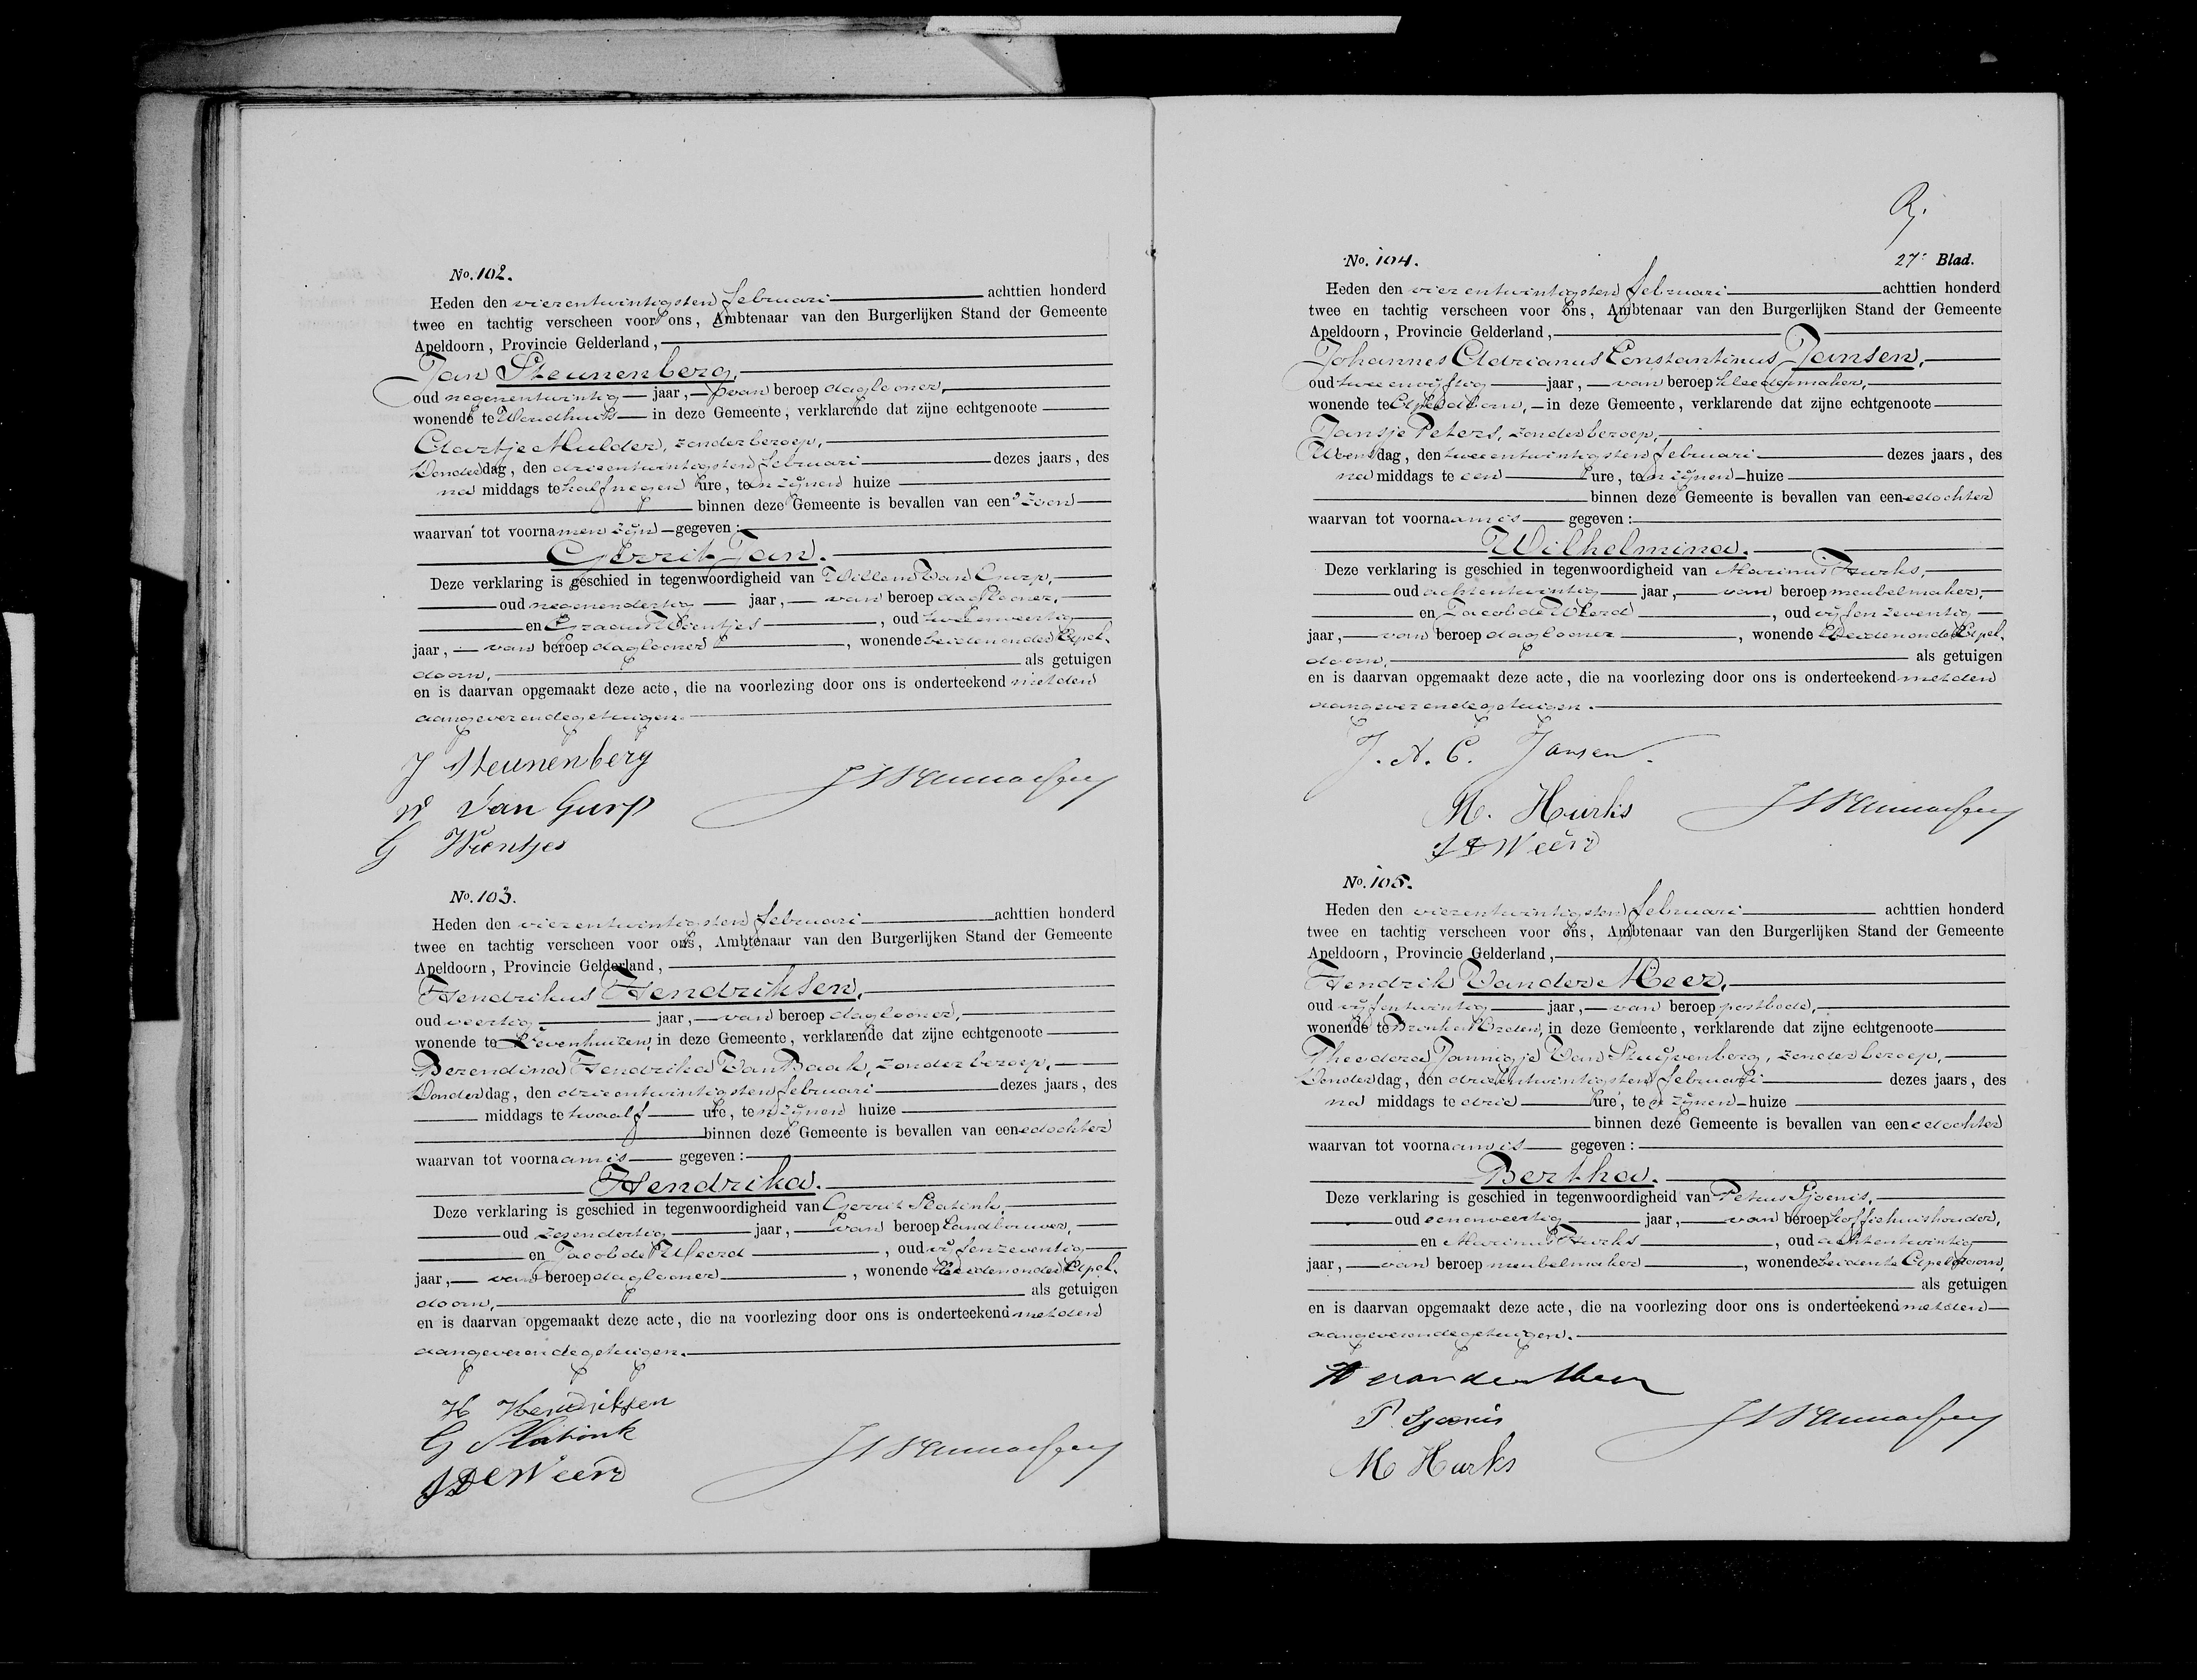 No. 102.
Heden den vierentwintigsten februari achttien honderd
twee en tachtig verscheen voor ons, Ambtenaar van den Burgerlijken Stand der Gemeente
Apeldoorn, Provincie Gelderland,
Jan Steunenberg,
oud negenentwintig jaar, van beroep daglooner,
wonende te Wendhuis in deze Gemeente, verklarende dat zijne echtgenoote
Aartje Mulder, zonder beroep,
Donderdag, den drieentwintigsten februari dezes jaars, des
na middags te half negen ure, ten zijnen huize
binnen deze Gemeente is bevallen van een zoon
waarvan tot voornamen zijn gegeven:
Gerrit Jan.
Deze verklaring is geschied in tegenwoordigheid van Willem Van Gurp,
oud negenendertig jaar, van beroep daglooner,
en Wientjes, oud tweeenveertig
jaar, van beroep daglooner, wonende beiden onder Apel-
doorn, als getuigen
en is daarvan opgemaakt deze acte, die na voorlezing door ons is onderteekend met den
aangever en de getuigen.
J Steunenberg
W Van Gurp
G Wientjes
No. 103.
Heden den vierentwintigsten februari achttien honderd
twee en tachtig verscheen voor ons, Ambtenaar van den Burgerlijken Stand der Gemeente
Apeldoorn, Provincie Gelderland,
Hendrikus Hendriksen,
oud veertig jaar, van beroep daglooner,
wonende te Zevenhuizen, in deze Gemeente, verklarende dat zijne echtgenoote
Berendina Hendrika Van Baak, zonder beroep,
Donderdag, den drieentwintigsten februari dezes jaars, des
middags te twaalf ure, ten zijnen huize
binnen deze Gemeente is bevallen van eene dochter
waarvan tot voornaam is gegeven:
Hendrika.
Deze verklaring is geschied in tegenwoordigheid van Gerrit Slatink,
oud zesendertig jaar, van beroep landbouwer,
en Jacob de Weerd, oud vijfenzeventig
jaar, van beroep daglooner, wonende beiden onder Apel-
doorn, als getuigen
en is daarvan opgemaakt deze acte, die na voorlezing door ons is onderteekend met den
aangever en de getuigen.
H Hendriksen
G Slatink
J D Weerd
27e Blad.
No. 104.
Heden den vierentwintigsten februari achttien honderd
twee en tachtig verscheen voor ons, Ambtenaar van den Burgerlijken Stand der Gemeente
Apeldoorn, Provincie Gelderland,
Johannes Adrianus Constantinus Jansen,
oud tweeenvijftig jaar, van beroep kleedermaker,
wonende te Apeldoorn, in deze Gemeente, verklarende dat zijne echtgenoote
Jansje Peters, zonder beroep,
Woensdag, den tweeentwintigsten februari dezes jaars, des
na middags te een ure, ten zijnen huize
binnen deze Gemeente is bevallen van eene dochter
waarvan tot voornaam is gegeven:
Wilhelmina.
Deze verklaring is geschied in tegenwoordigheid van Marinus Hurks,
oud achtentwintig jaar, van beroep meubelmaker,
en Jacob de Weerd, oud vijfenzeventig
jaar, van beroep daglooner, wonende beiden onder Apel-
doorn, als getuigen
en is daarvan opgemaakt deze acte, die na voorlezing door ons is onderteekend met den
aangever en de getuigen.
J. A. C. Jansen.
M. Hurks
J D Weerd
No. 105.
Heden den vierentwintigsten februari achttien honderd
twee en tachtig verscheen voor ons, Ambtenaar van den Burgerlijken Stand der Gemeente
Apeldoorn, Provincie Gelderland,
Hendrik Van der Meer,
oud vijfentwintig jaar, van beroep postbode,
wonende te in deze Gemeente, verklarende dat zijne echtgenoote
Theodora Jannigje Van Stuijvenberg, zonder beroep,
Donderdag, den drieentwintigsten februari dezes jaars, des
na middags te drie ure, ten zijnen huize
binnen deze Gemeente is bevallen van eene dochter
waarvan tot voornaam is gegeven:
Bertha.
Deze verklaring is geschied in tegenwoordigheid van Petrus Sjoenis,
oud eenenveertig jaar, van beroep koffiehuishouder,
en Marinus Hurks, oud achtentwintig
jaar, van beroep meubelmaker, wonende beiden te Apeldoorn,
als getuigen
en is daarvan opgemaakt deze acte, die na voorlezing door ons is onderteekend met den
aangever en de getuigen.
H van der Meer
P. Sjoenis
M Hurks